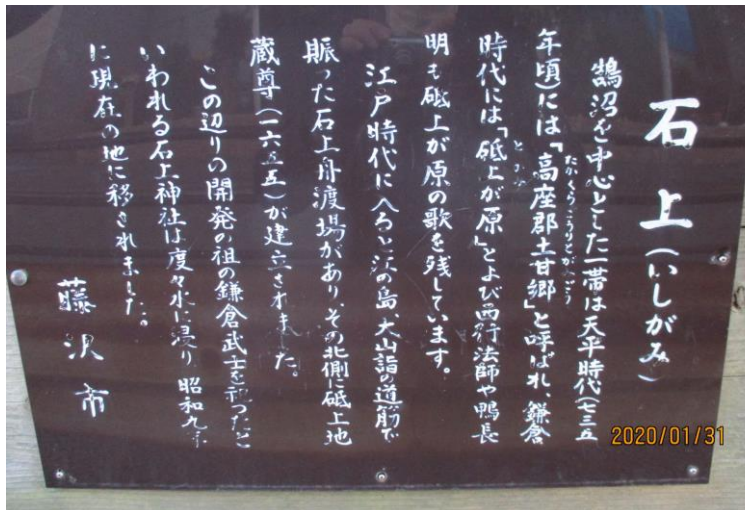 石上(いしがみ)
鵠沼を中心とした一帯は天平時代(七三五
年頃)には「高座郡土甘郷」と呼ばれ、鎌倉
たかくらごうりとがみごう
時代には「砥上が原」とよび西行法師や鴨長
とがみ
明も砥上が原の歌を残しています。
江戸時代に入ると江の島、大山詣の道筋で
賑った石上舟渡場があり、その北側に砥上地
蔵尊(一六五五)が建立されました。
この辺りの開発の祖の鎌倉武士を祀ったと
いわれる石上神社は度々水に浸り 昭和九年
に現在の地に移されました。
藤沢市
2020/01/31